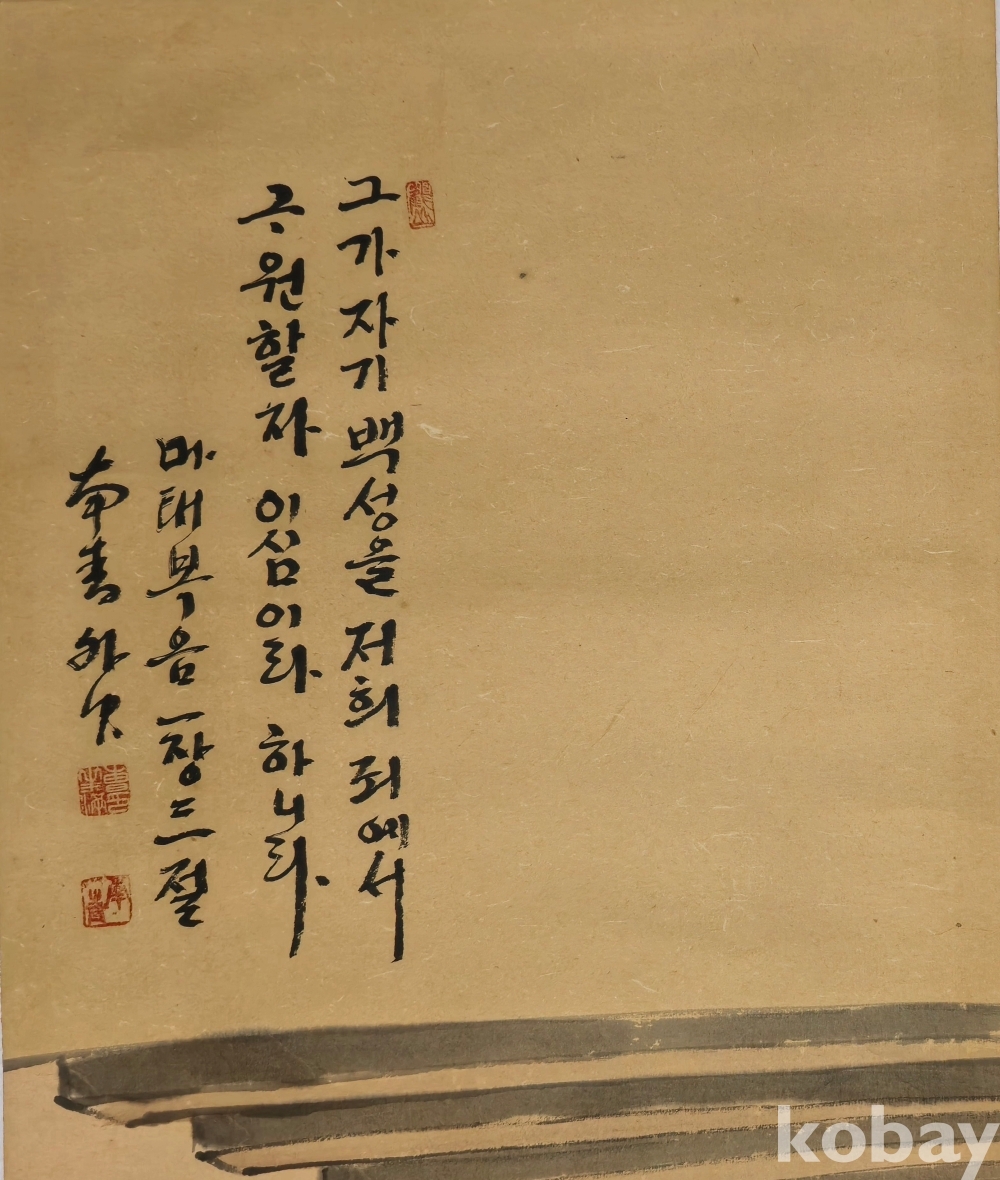 그가 자기 백성을 저희 죄에서
구원할 자 이심이라 하니라
마태복음 一장 二一절
kobay